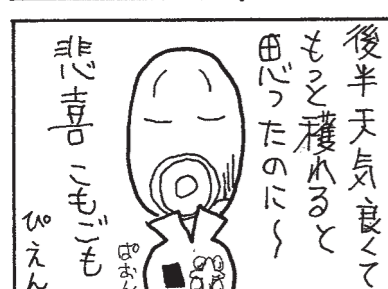 後半天気良くて
もっと穫れると
思ったのに〜
悲喜こもごも
ぴえん
ぱおん